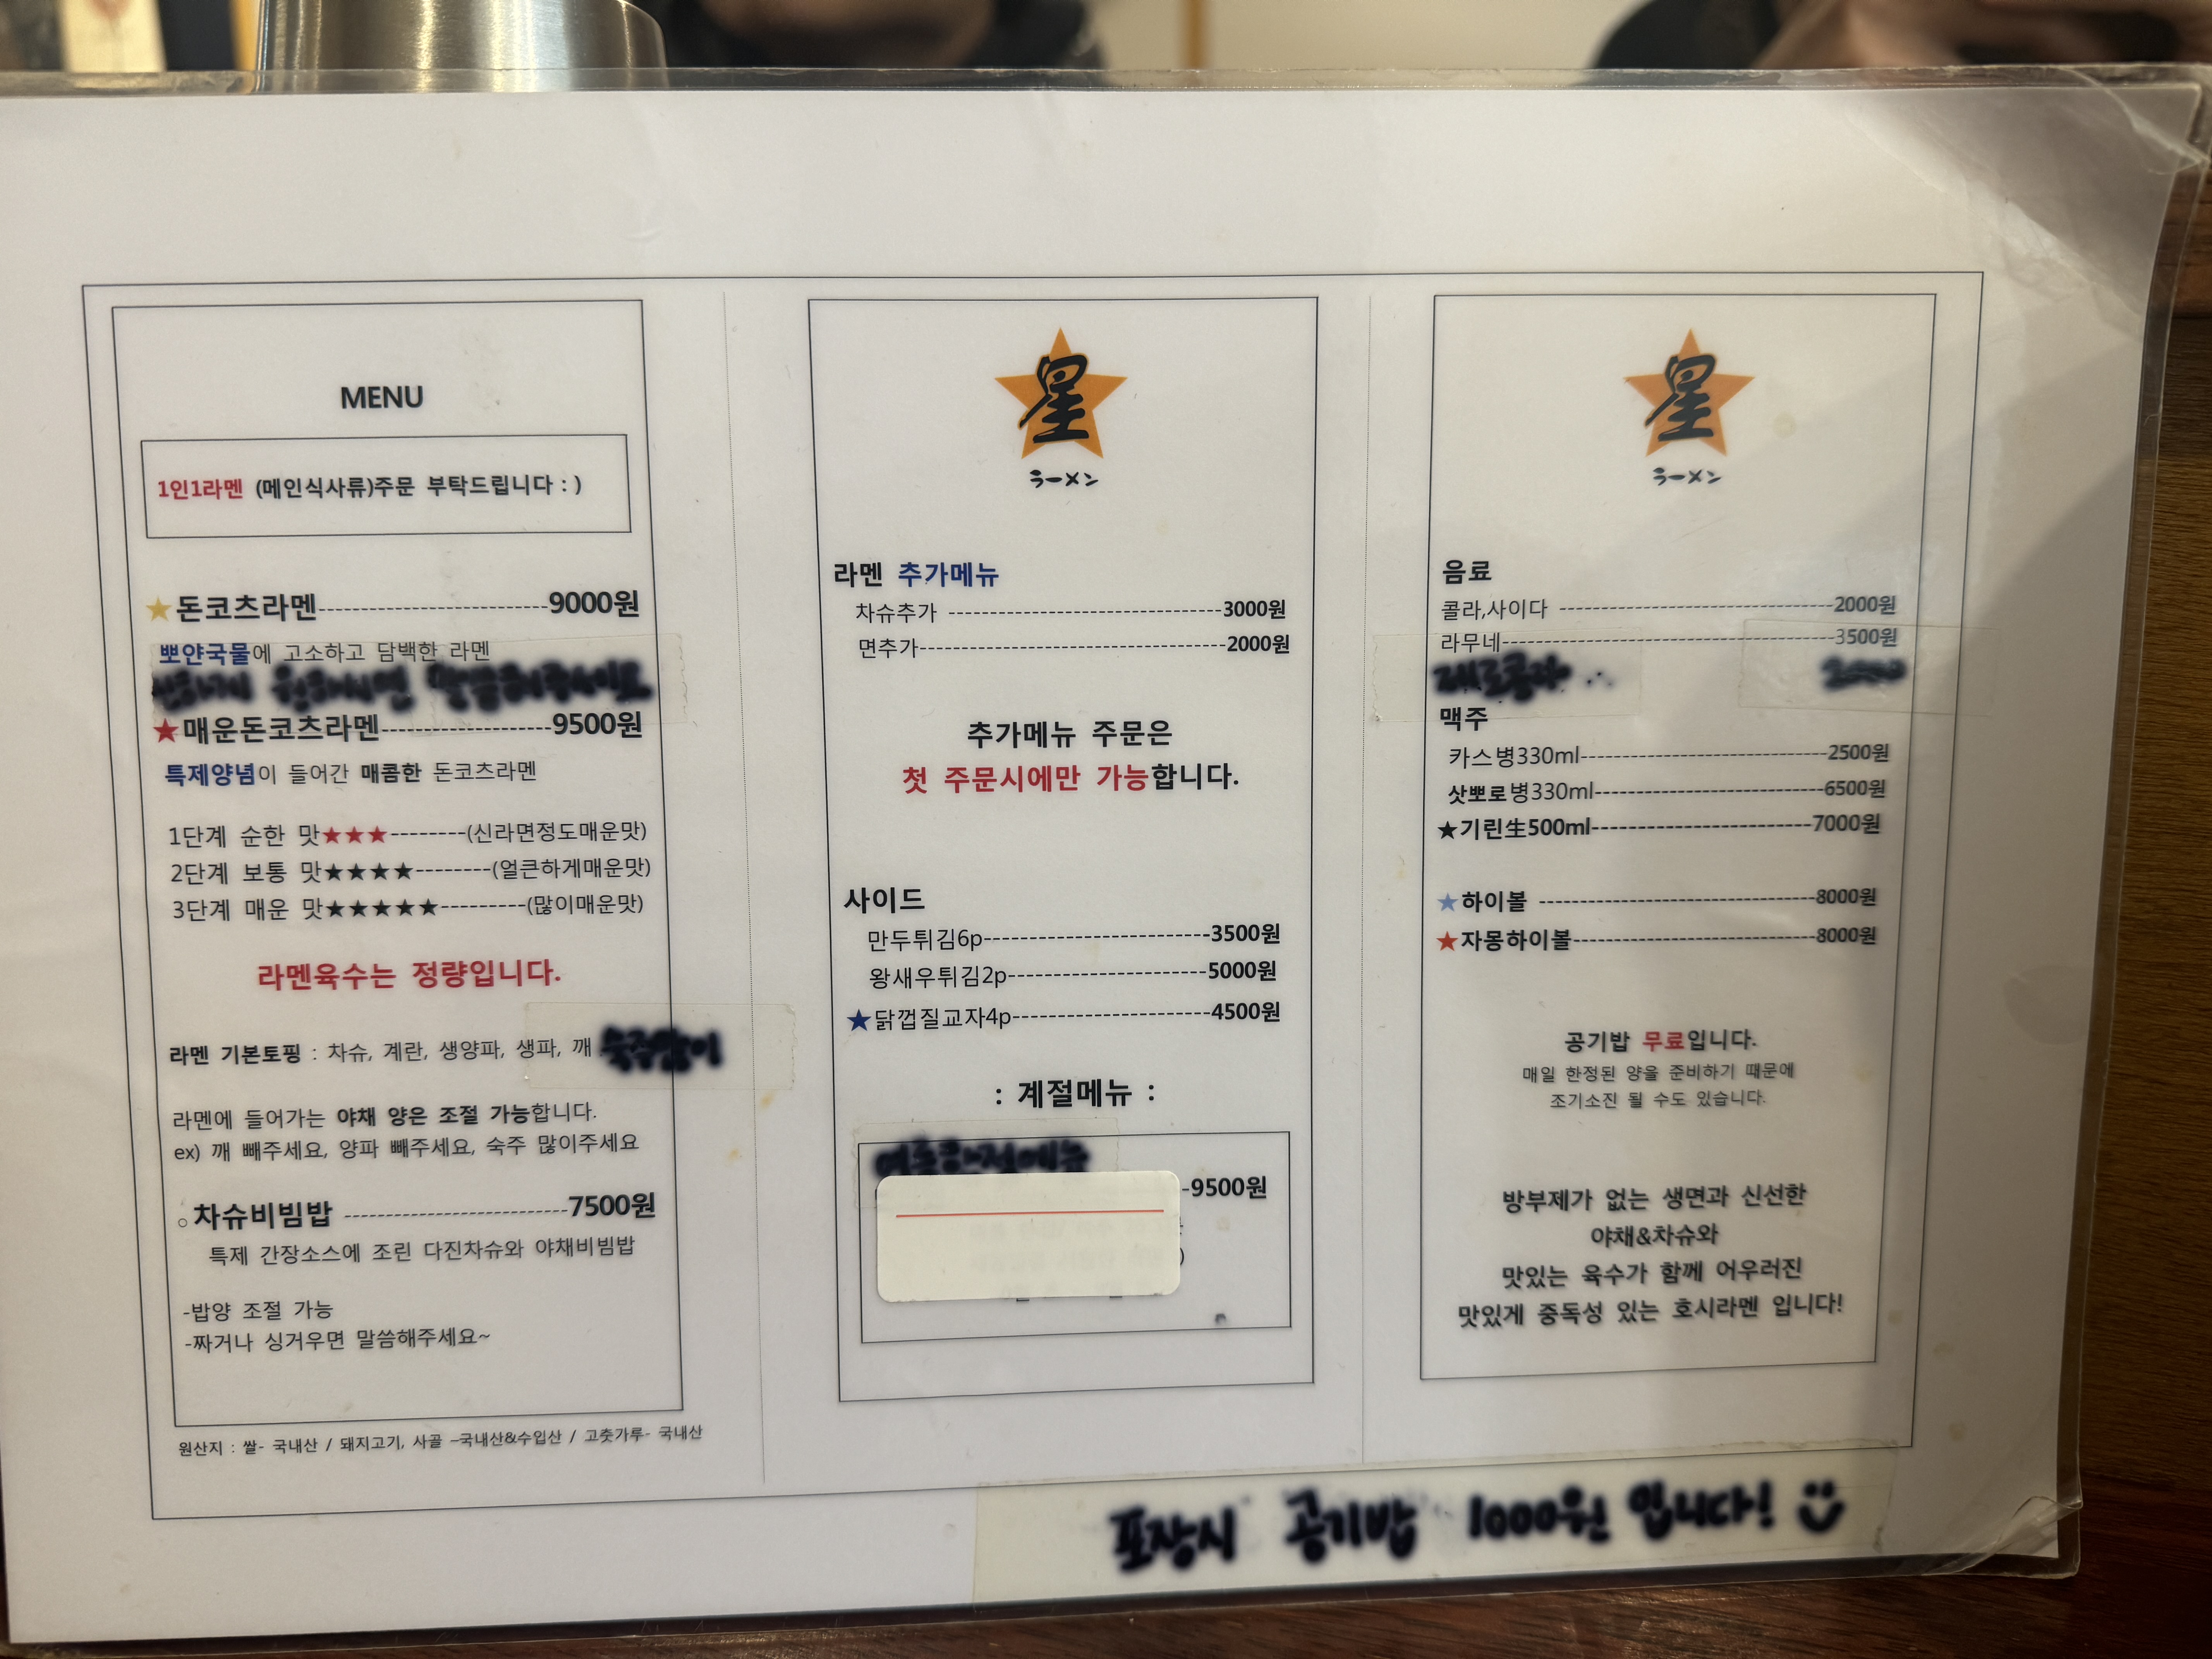 MENU
1인1라멘 (메인식사류)주문 부탁드립니다 : )
★돈코츠라멘------------------------9000원
뽀얀국물에 고소하고 담백한 라멘
원하시면 말씀해주세요
★매운돈코츠라멘------------------9500원
특제양념이 들어간 매콤한 돈코츠라멘
1단계 순한 맛★★★---------(신라면정도매운맛)
2단계 보통 맛★★★★---------(얼큰하게매운맛)
3단계 매운 맛★★★★★----------(많이매운맛)
라멘육수는 정량입니다.
라멘 기본토핑 : 차슈, 계란, 생양파, 생파, 깨 숙주많이
라멘에 들어가는 야채 양은 조절 가능합니다.
ex) 깨 빼주세요, 양파 빼주세요, 숙주 많이주세요
○차슈비빔밥 --------------------------7500원
특제 간장소스에 조린 다진차슈와 야채비빔밥
-밥양 조절 가능
-짜거나 싱거우면 말씀해주세요~
원산지 : 쌀- 국내산 / 돼지고기, 사골 –국내산&수입산 / 고춧가루- 국내산
星
ラーメン
라멘 추가메뉴
차슈추가 -----------------------------3000원
면추가--------------------------------2000원
추가메뉴 주문은
첫 주문시에만 가능합니다.
사이드
만두튀김6p------------------------3500원
왕새우튀김2p---------------------5000원
★닭껍질교자4p---------------------4500원
: 계절메뉴 :
-9500원
星
ラーメン
음료
콜라,사이다 -----------------------------2000원
라무네-----------------------------------3500원
제로콜라 2000
맥주
카스병330ml--------------------------2500원
삿뽀로병330ml------------------------6500원
★기린生500ml------------------------7000원
★하이볼 ------------------------------8000원
★자몽하이볼--------------------------8000원
공기밥 무료입니다.
매일 한정된 양을 준비하기 때문에
조기소진 될 수도 있습니다.
방부제가 없는 생면과 신선한
야채&차슈와
맛있는 육수가 함께 어우러진
맛있게 중독성 있는 호시라멘 입니다!
포장시 공기밥 1000원 입니다!